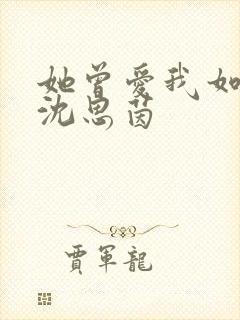 她曾愛我如
沈思茵
賈軍龍